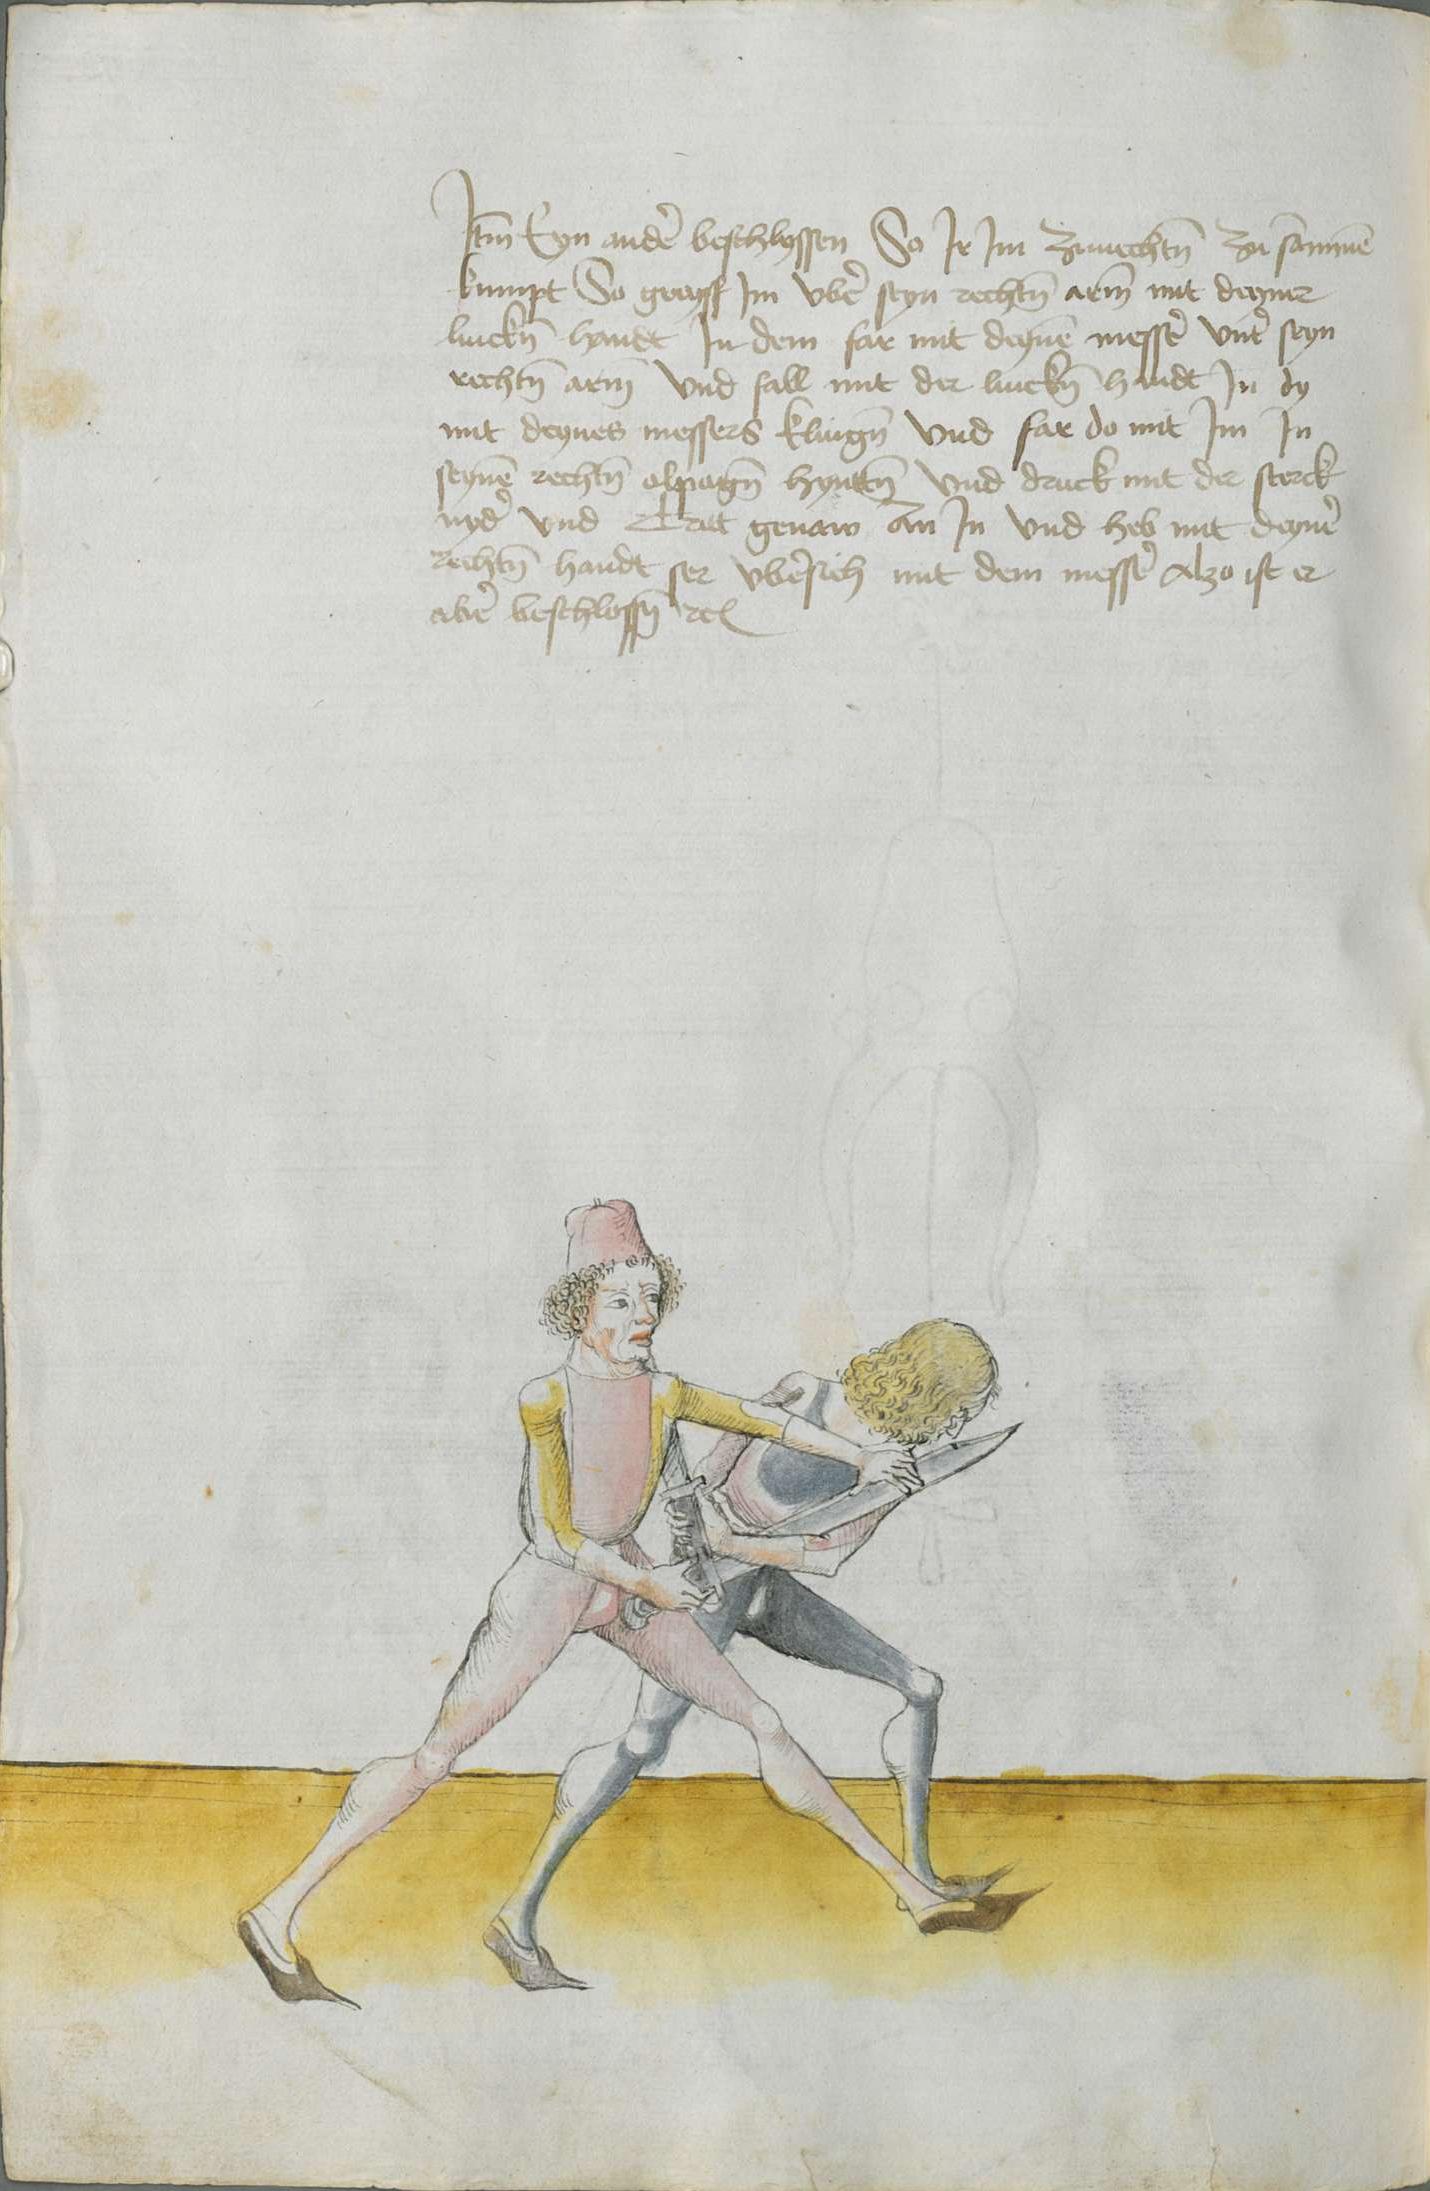 Itm̄ Eyn ander̉ beschlyssen So Ir Im Zuuechtn̄ Zu sam̄mē
kumpt So greyff Im vber̉ seyn rechtn̄ arm̄ mit deyner
linckn̄ handt In dem far mit deynē messer̉ vnter̉ seyn
rechtn̄ arm̄ vnd fall mit der linckn̄ handt In dy
mit deynes messers klingn̄ vnd far do mit Im In
seynē rechtn̄ elpogn̄ hynttn̄ vnd druck mit der sterck
nyder̉ vnd Tritt genaw An In vnd heb mit deyner̉
rechtn̄ handt ser vber̉sich mit dem messer̉ Alzo ist er
aber̉ beschlossn̄ rc